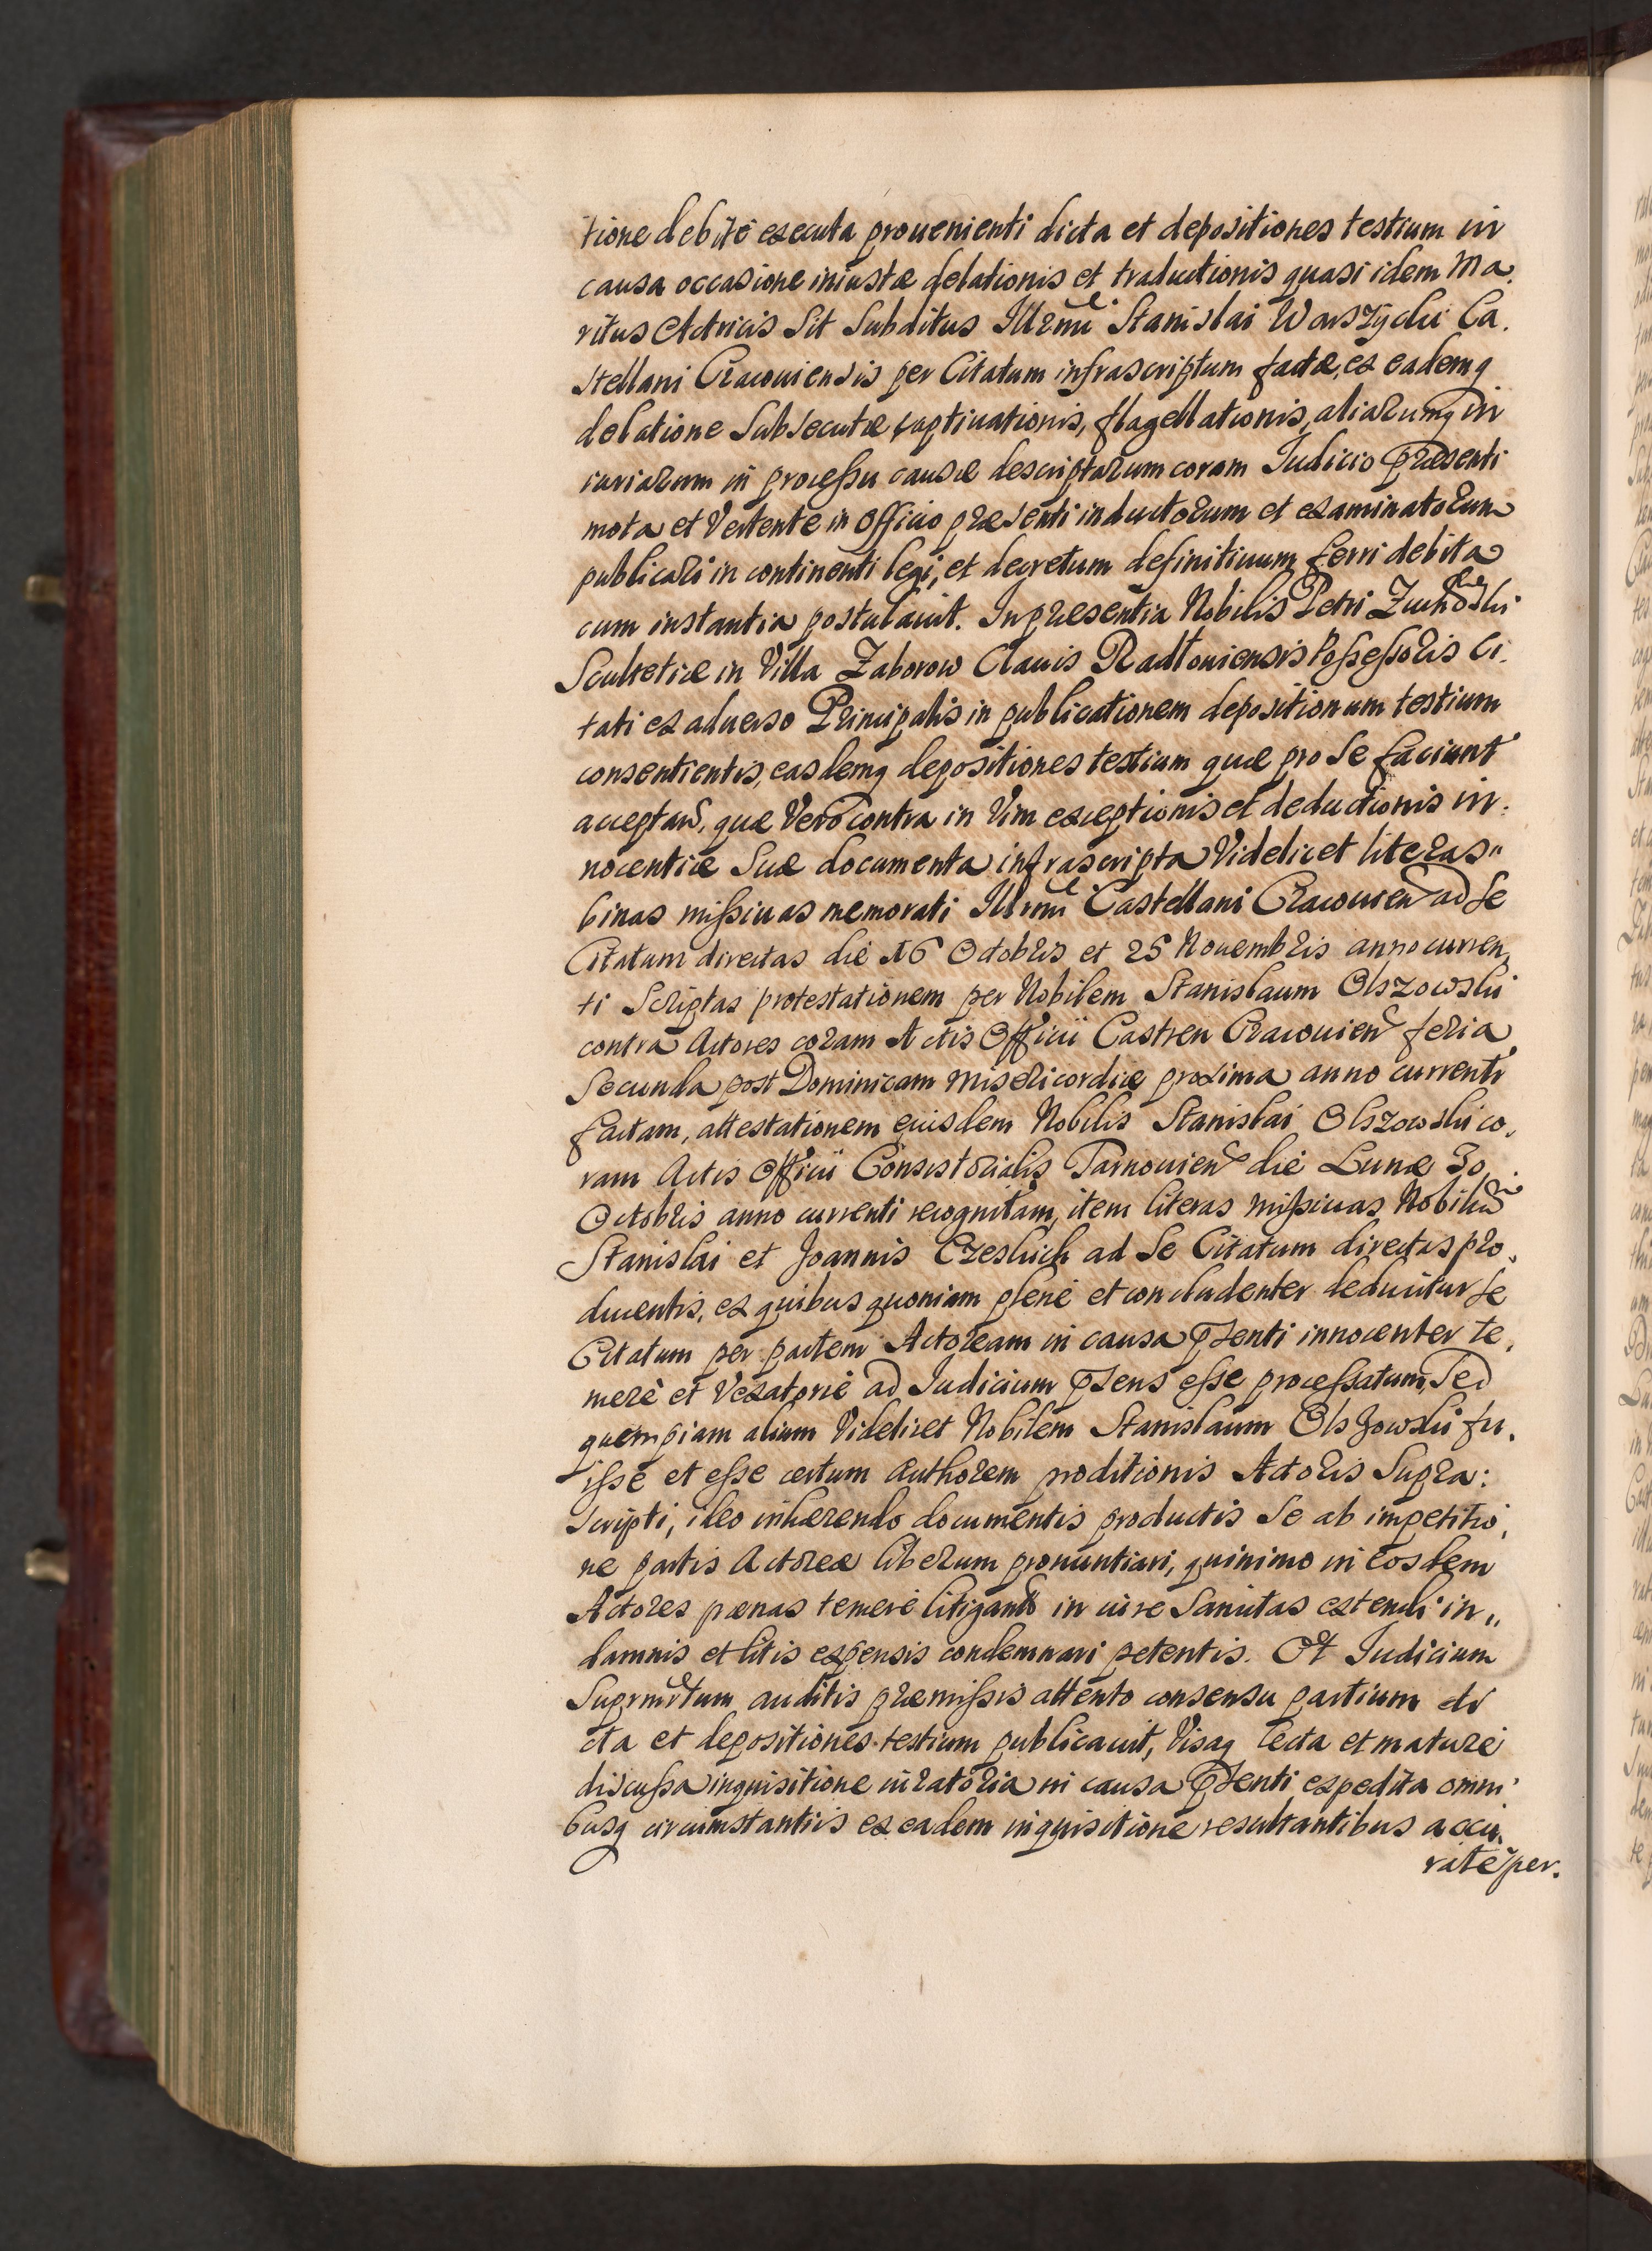 tione debite executa prouenienti dicta et depositiones testium in
causa occasione iniustæ delationis et traductionis quasi idem Ma.
ritus Actricis Sit Subditus Illrmi Stanislai Warszycki Ca.
stellani Cracouiensis per Citatum infrascriptum factæ, ex eademq
delatione Subsecutæ captiuationis, flagellationis, aliarumq in
iuriarum in processu causæ descriptarum coram Iudicio præsenti
mota et Vertente in Officio præsenti inductorum et examinatorum
publicari in continenti legi, et decretum definitiuum ferri debita
cum instantia postulauit. In præsentia Nobilis Petri
Scultetiæ in Villa Zaborow Clauis Radłouiensis Possessoris Ci.
tati ex aduerso Principalis in publicationem depositionum testium
consentientis, easdemq depositiones testium quæ pro Se faciunt
acceptan, quæ Vero contra in Vim exceptionis et deductionis in.
nocentiæ Suæ documenta infrascripta Videlicet literas
binas missiuas memorati Illrmi Castellani Cracouien ad Se
Citatum directas die 16 Octobris et 25 Nouembris anno curren,
ti Scriptas protestationem per Nobilem Stanislaum Olszowski
contra Actores coram Actis Officii Castren Cracouien feria
Secunda post Dominicam Misericordiæ proxima anno currenti
factam, attestationem eiusdem Nobilis Stanislai Olszowski co.
ram Actis Officii Consistorialis Tarnouien die Lunæ 30
Octobris anno currenti recognitam, item literas missiuas Nobiliu
Stanislai et Joannis Czeskich ad Se Citatum directas pro.
ducentis, ex quibus quoniam plene et concludenter deducitur Se
Citatum per partem Actoream in causa psenti innocenter te.
merè et Vexatoriè ad Iudicium psens esse processatum, Sed
quempiam alium Videlicet Nobilem Stanislaum Olszowski fu.
isse et esse certum Authorem proditionis Actoris Supra:
scripti, ideo inhærendo documentis productis Se ab impetitio,
ne partis Actoreæ liberum pronuntiari, quinimo in eosdem
Actores pænas temerè litigantiu in iure Sancitas extendi in,,
damnis et litis expensis condemnari petentis. Et Iudicium
Suprmitum auditis præmissis attento consensu partium di
cta et depositiones testium publicauit, Visaq lecta et maturè
discussa inquisitione iuratoria in causa psenti expedita omni
busq circumstantiis ex eadem inquisitione resultantibus accu.
ratè per.